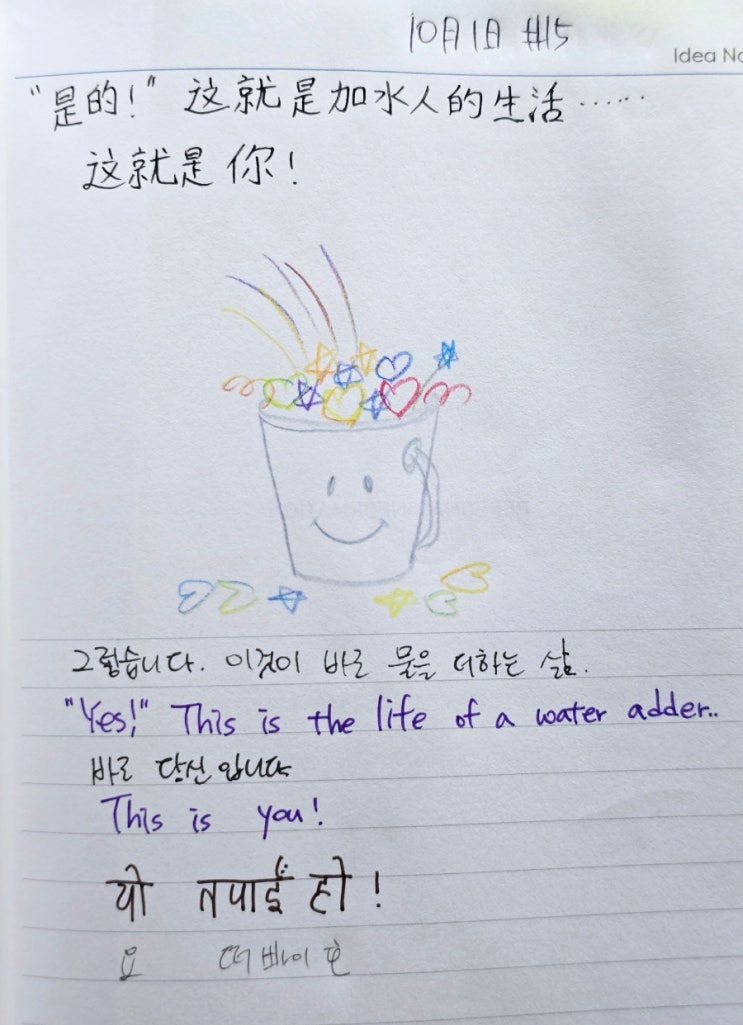 10月1日 #15
Idea No
"是的!" 这就是加水人的生活……
这就是你!
그렇습니다. 이것이 바로 물을 더하는 삶.
"Yes!" This is the life of a water adder..
바로 당신입니다
This is you!
यो तपाईँ हो !
요 떠빠이 호